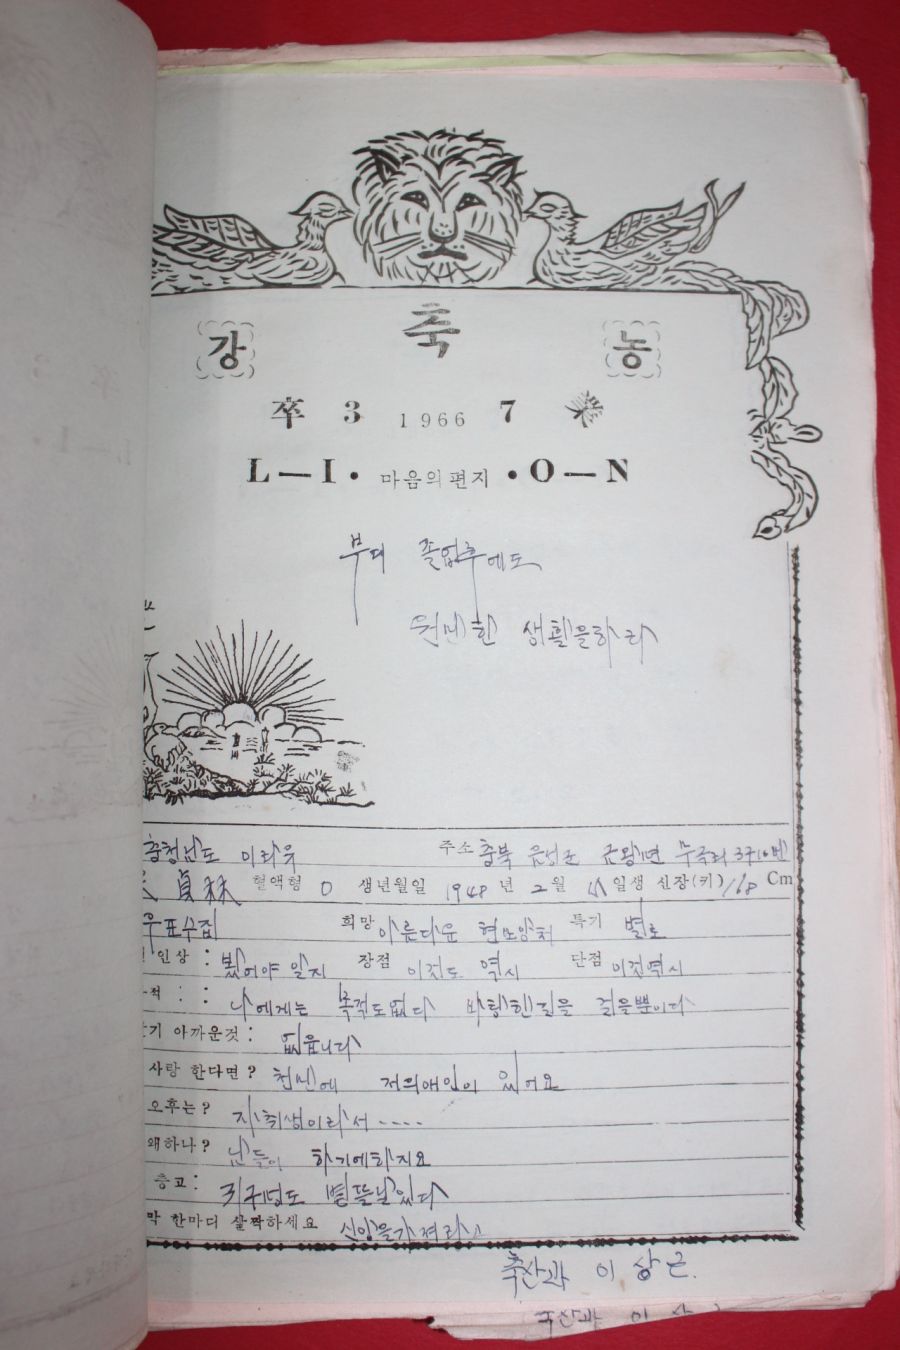 축
강 농
卒 3 1966 7 業
L—I• 마음의편지 •O—N
부디 졸업후에도
원만한 생활을하라
충청남도 이리유
주소 충북 음성군 금왕면 무극리 3구
貞林 혈액형 O 생년월일 1948 년 2 월 일생 신장(키) 168 Cm
우표수집 희망 아름다운 현모양처 특기 별로
인상 : 봤어야 알지 장점 이것도 역시 단점 이것역시
적 : : 나에게는 목적도없다 바랑한길을 걸을뿐이다
기 아까운것 : 없읍니다
사랑 한다면? 천만에 저의애인이 있어요
오후는? 자취생이라서 ----
왜하나? 남들이 하기에하지요
충고 : 쥐구멍도 볕뜰날있다
막 한마디 살짝하세요 신앙을가져라고
축산과 이상근.
축산과 이상